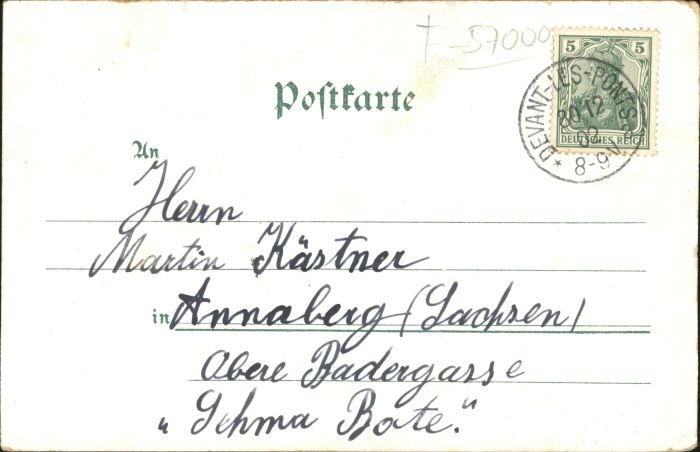 57000
5
5
DEUTSCHES REICH
* DEVANT-LES-PONTS *
20.12
02
8-9V.
Postkarte
An
Herrn
Martin Kästner
in Annaberg (Sachsen)
Obere Badergasse
„Sehma Bote."